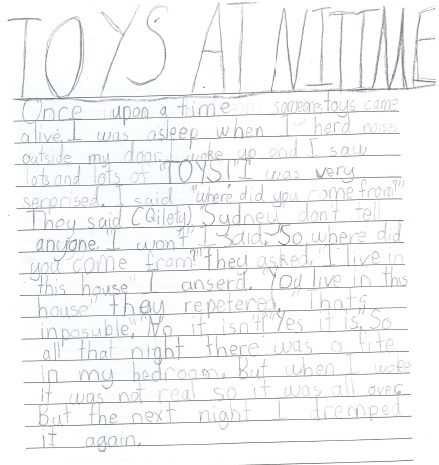 TOYS AT NITIME
Once upon a time someones toys came
alive. I was asleep when I herd noises
outside my door. I woke up and I saw
lots and lots of "TOYS!" I was very
serprised. I said "where did you come from?"
They said (Qilety) Sydney don't tell
anyone. I won't I said. So where did
you come from?" They asked. I live in
this house" I anserd. "You live in this
house" They repetered. "Thats
inposuble." "No it isn't" "Yes it is." So
all that night there was a fite
in my bedroom. But when I woke
it was not real so it was all over.
But the next night I dremped
it again.